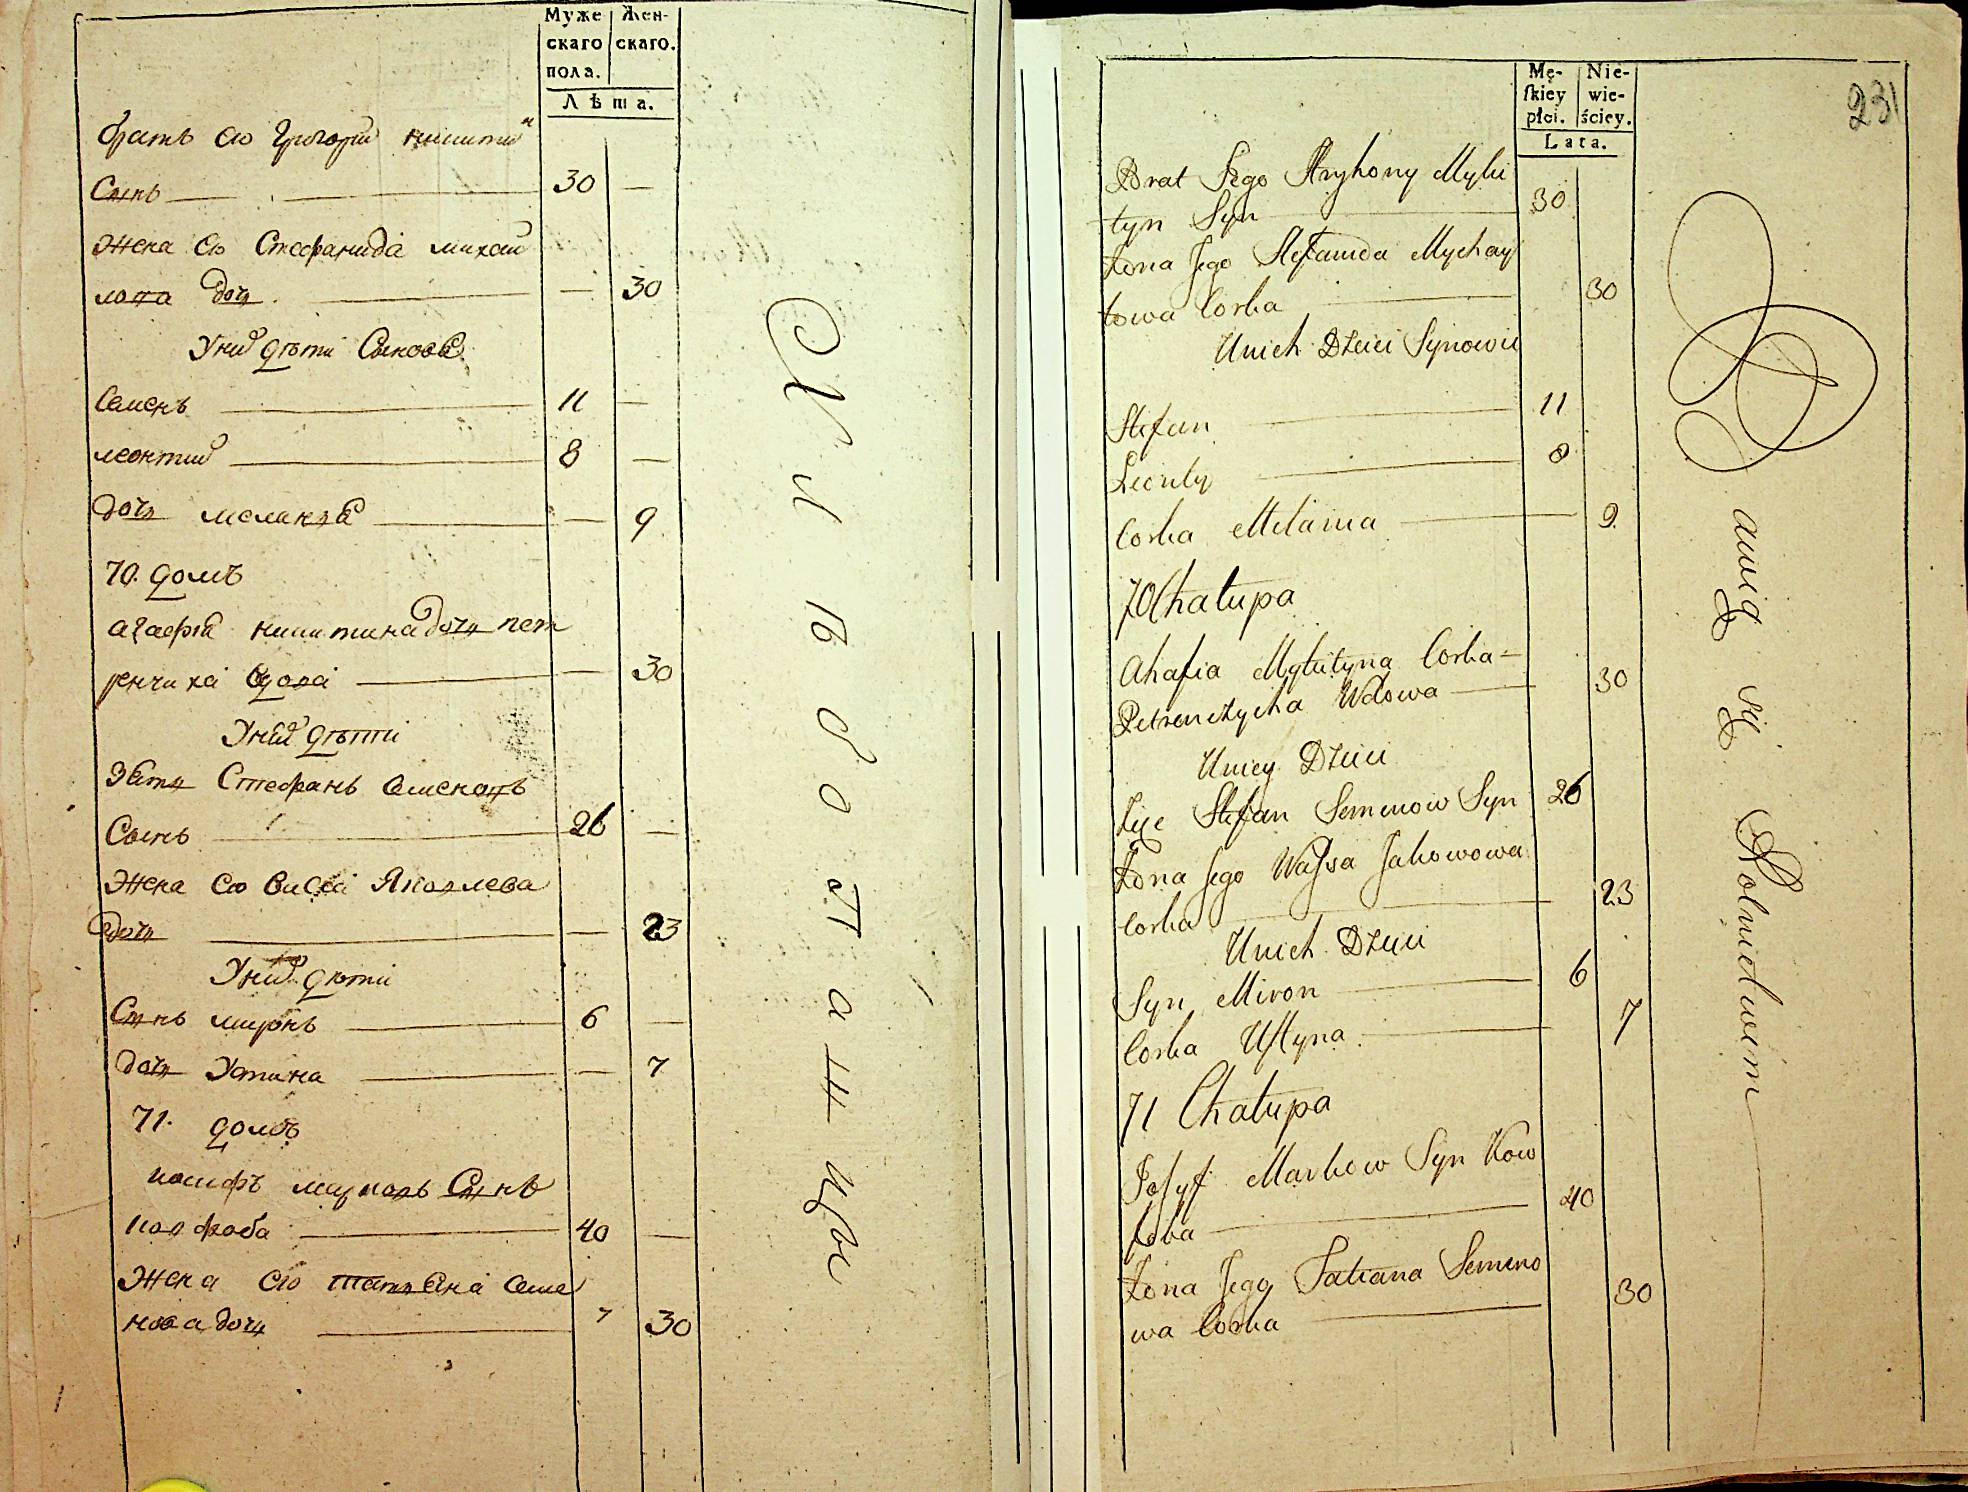 Муже
скаго
пола.
Жен-
скаго.
Лѣта.
братъ его Григорій никитин
Сынъ 30
жена его Стефанида михаи
лова дочь 30
У них дѣти Сынове
Семенъ 11
леонтий 8
дочь меланія 9
70. домъ
агафія никитина дочь пет
ренчиха вдова 30
У них дѣти
Зять Стефанъ Семеновъ
Сынъ 26
жена его Васса Яковлева
дочь 23
У них дѣти
Сынъ миронъ 6
дочь Устина 7
71. домъ
иосифъ марковъ Сынъ
ковтоба 40
жена его татьяна Семе
нова дочь 30
Хлѣбопашцы
231
Mę-
skiey
płci.
Nie-
wie-
ściey.
Lata.
Brat Jego Hryhory Myki
tyn Syn 30
Żona Jego Stefanida Mychay
łowa Corka 30
Unich Dzieci Synowie
Stefan 11
Leonty 8
Corka Melania 9
70 Chałupa
Ahafia Mykityna Corka
Petrenczycha Wdowa 30
Uniey Dzieci
Zięc Stefan Semenow Syn 26
Żona Jego Wassa Jakowowa
Corka 23
Unich Dzieci
Syn Miron 6
Corka Ustyna 7
71 Chałupa
Jozyf Markow Syn Kow
toba 40
Żona Jego Tatiana Semeno
wa Corka 30
Bawią się Rolnictwem